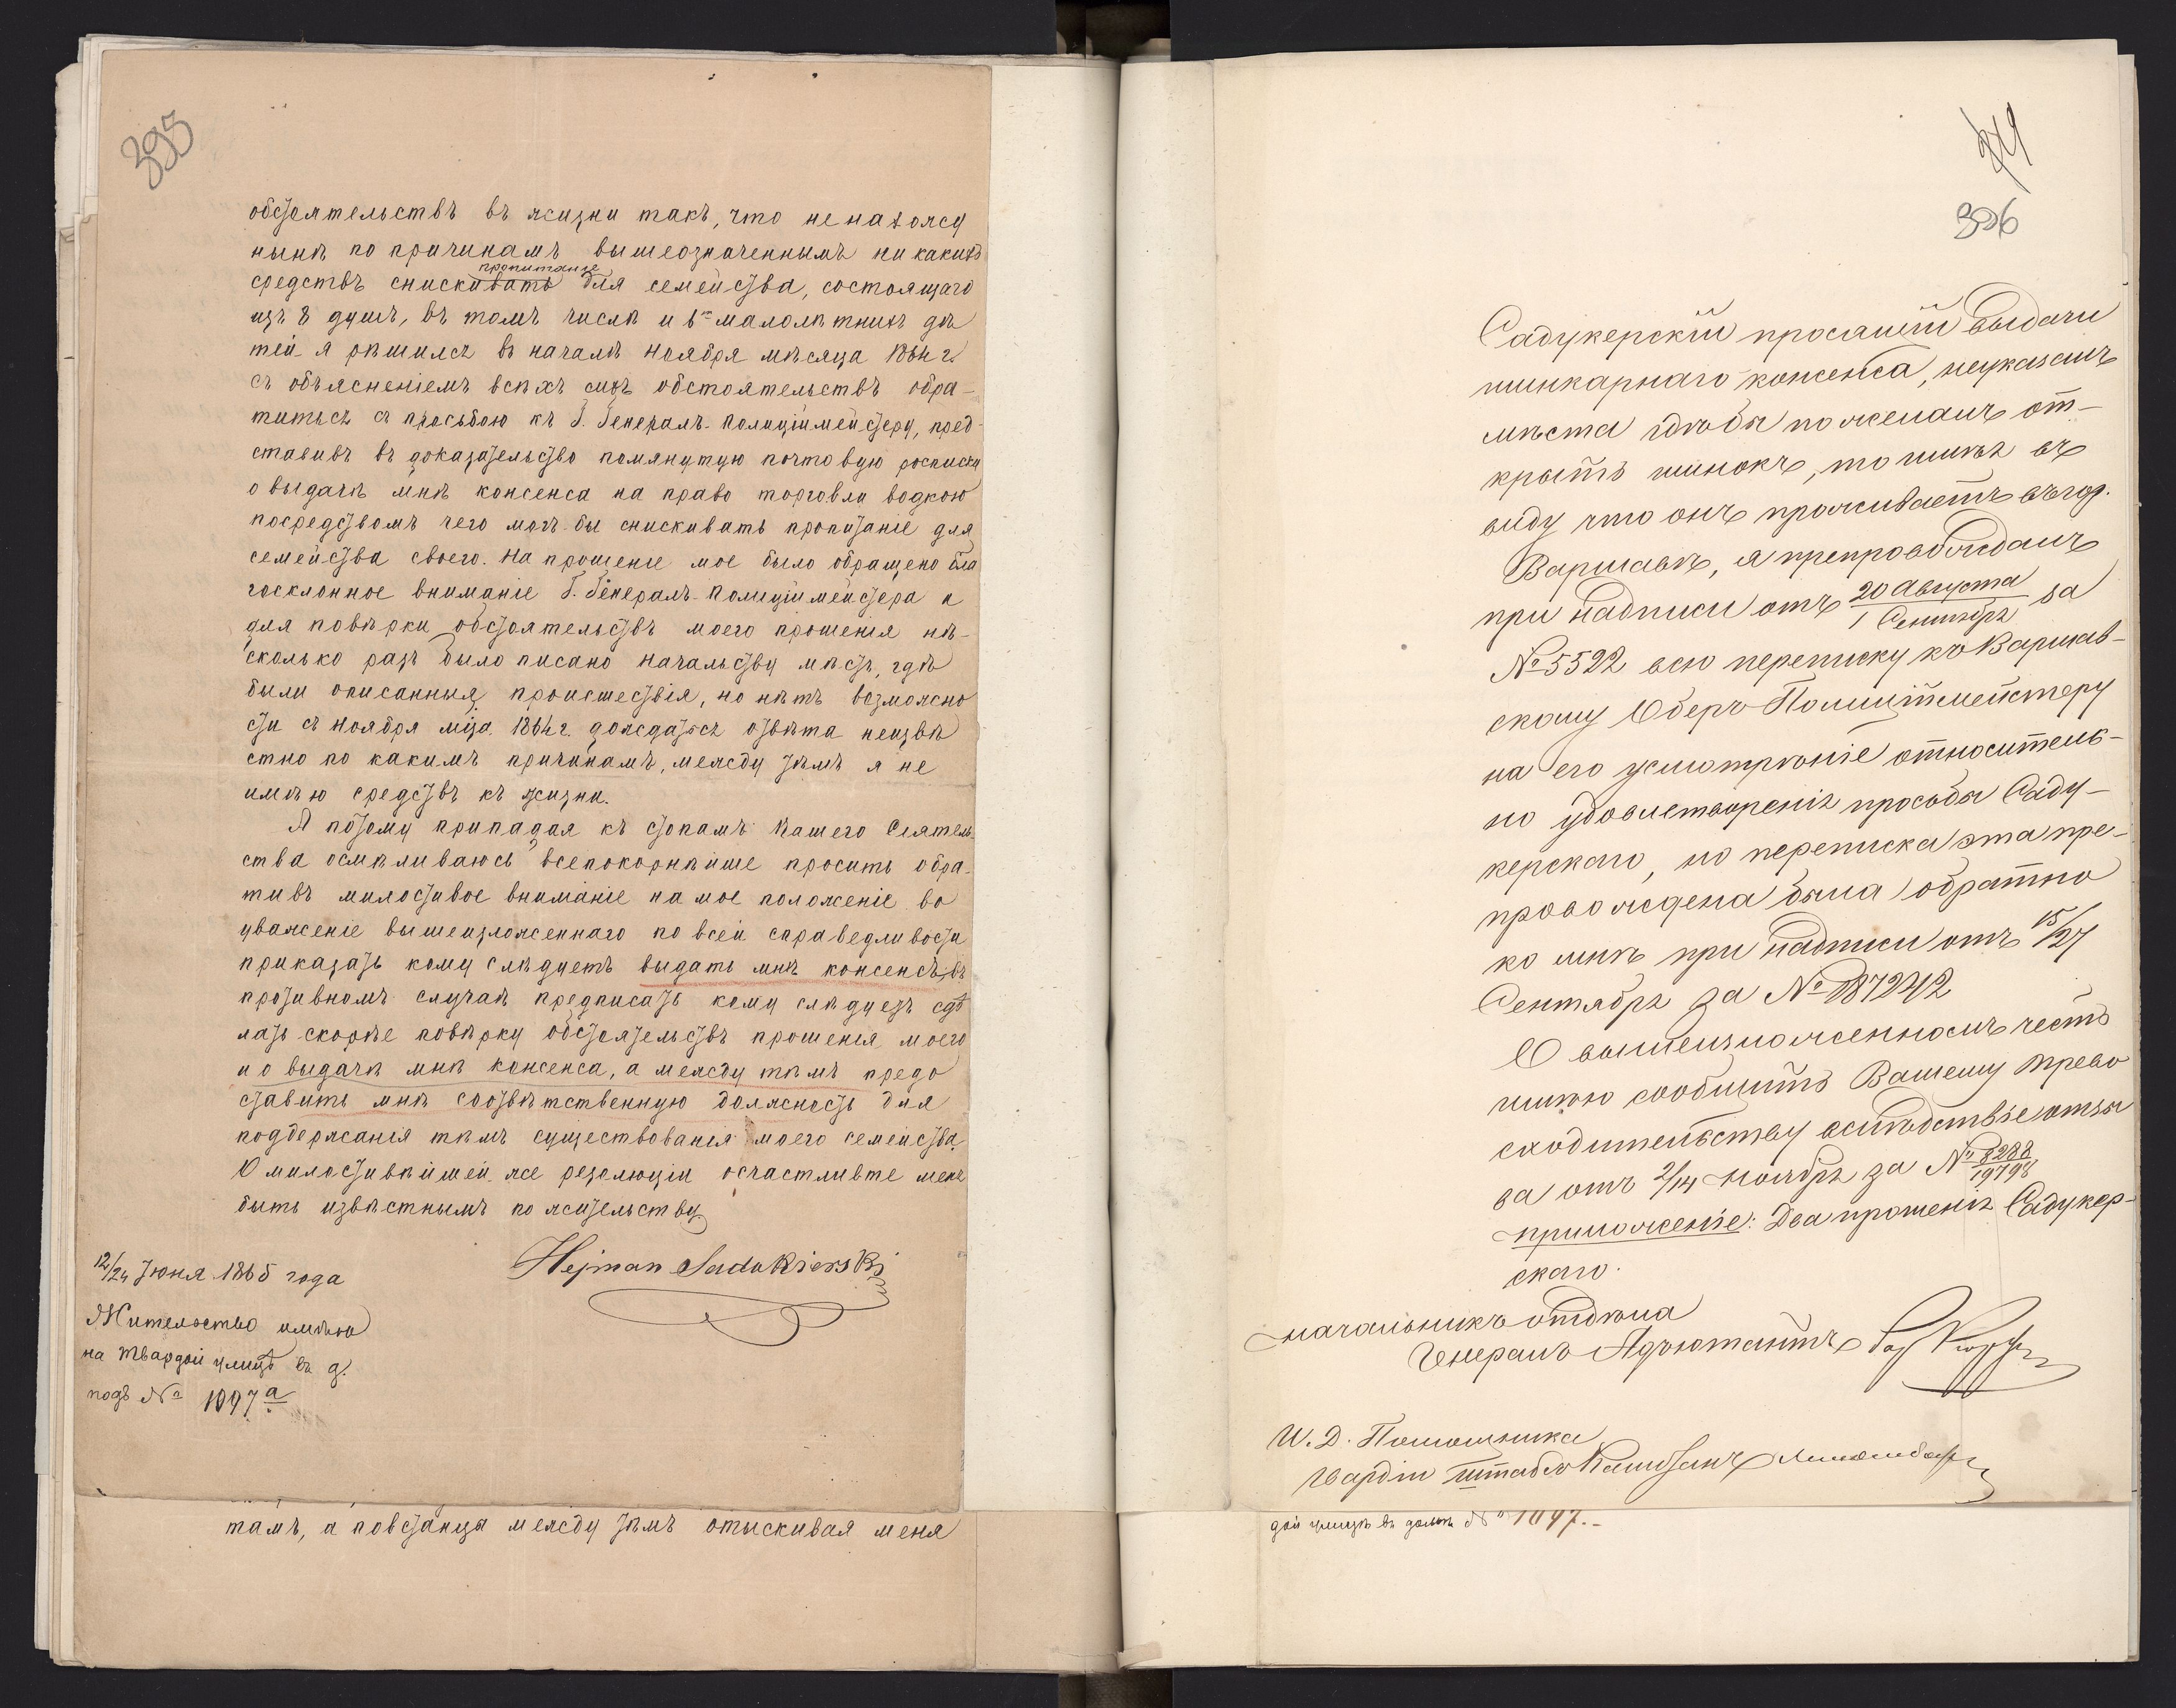 395
обстоятельствъ въ жизни такъ, что не нахожу
нынѣ по причинамъ вышеозначеннымъ ни какихъ
пропитанiе
средствъ снискивать для семейства, состоящаго
изъ 8 душъ, въ томъ числѣ и 6ти малолѣтнихъ дѣ
тей я рѣшился въ началѣ Ноября мѣсяца 1864 г.
съ объясненiемъ всѣхъ сихъ обстоятельствъ обра-
титься съ просьбою къ Г. Генералъ-Полицiймейстеру, пред-
ставивъ въ доказательство помянутую почтовую росписку
о выдачѣ мнѣ консенса на право торговли водкою
посредствомъ чего могъ бы снискивать пропитанiе для
семейства своего. На прошенiе мое было обращено бла
госклонное вниманiе Г. Генералъ-Полицiймейстера и
для повѣрки обстоятельствъ моего прошенiя нѣ-
сколько разъ было писано Начальству мѣстъ, гдѣ
были описанныя происшествiя, но нѣтъ возможно
сти съ Ноября мца. 1864 г. дождаться отвѣта неизвѣ
стно по какимъ причинамъ, между тѣмъ я не
имѣю средствъ къ жизни.
А потому припадая къ стопамъ Вашего Сiятель
ства осмѣливаюсь всепокорнѣйше просить обра-
тивъ милостивое вниманiе на мое положенiе во
уваженiе вышеизложеннаго по всей справедливости
приказать кому слѣдуетъ выдать мнѣ консенсъ, въ
противномъ случаѣ предписать кому слѣдуетъ сдѣ
лать скорѣе повѣрку обстоятельствъ прошенiя моего
и о выдачѣ мнѣ консенса, а между тѣмъ предо
ставить мнѣ соотвѣтственную должность для
поддержанiя тѣмъ существованiя моего семейства.
О милостивѣйшей же резолюцiи осчастливте меня
быть извѣстнымъ по жительству
Hejman Sadukierski
12/24 Июня 1865 года
Жительство имѣю
на Твардой улицѣ въ д.
подъ № 1097 а
тамъ, а повстанца между тѣмъ отыскивая меня
396
Садукерскiй просившiй выдачи
шинкарнаго консенса, неуказалъ
мѣста гдѣбы пожелалъ от-
крыть шинокъ, то имѣя въ
виду что онъ проживаетъ въ гор.
Варшавѣ, я препровождалъ
при надписи отъ 20 Августа/1 Сентября за
№ 5522 всю переписку къ Варшав-
скому Оберъ-Полицiймейстеру
на его усмотрѣнiе относитель-
но удовлетворенiя просьбы Саду-
керскаго, но переписка эта пре-
провождена была обратно
ко мнѣ при надписи отъ 15/27
Сентября за № 187242
О вышеизложенномъ честь
имѣю сообщить Вашему Прево
сходительству вслѣдствiе отзы
ва отъ 2/14 Ноября за № 8288/19798
Приложенiе: Два прошенiя Садукер-
скаго.
Начальникъ отдѣла
Генералъ Адъютантъ Бар Корфъ
И. Д. Помощника
Гвардiи Штабсъ Капитанъ
дой улицѣ въ домѣ № 1097.-